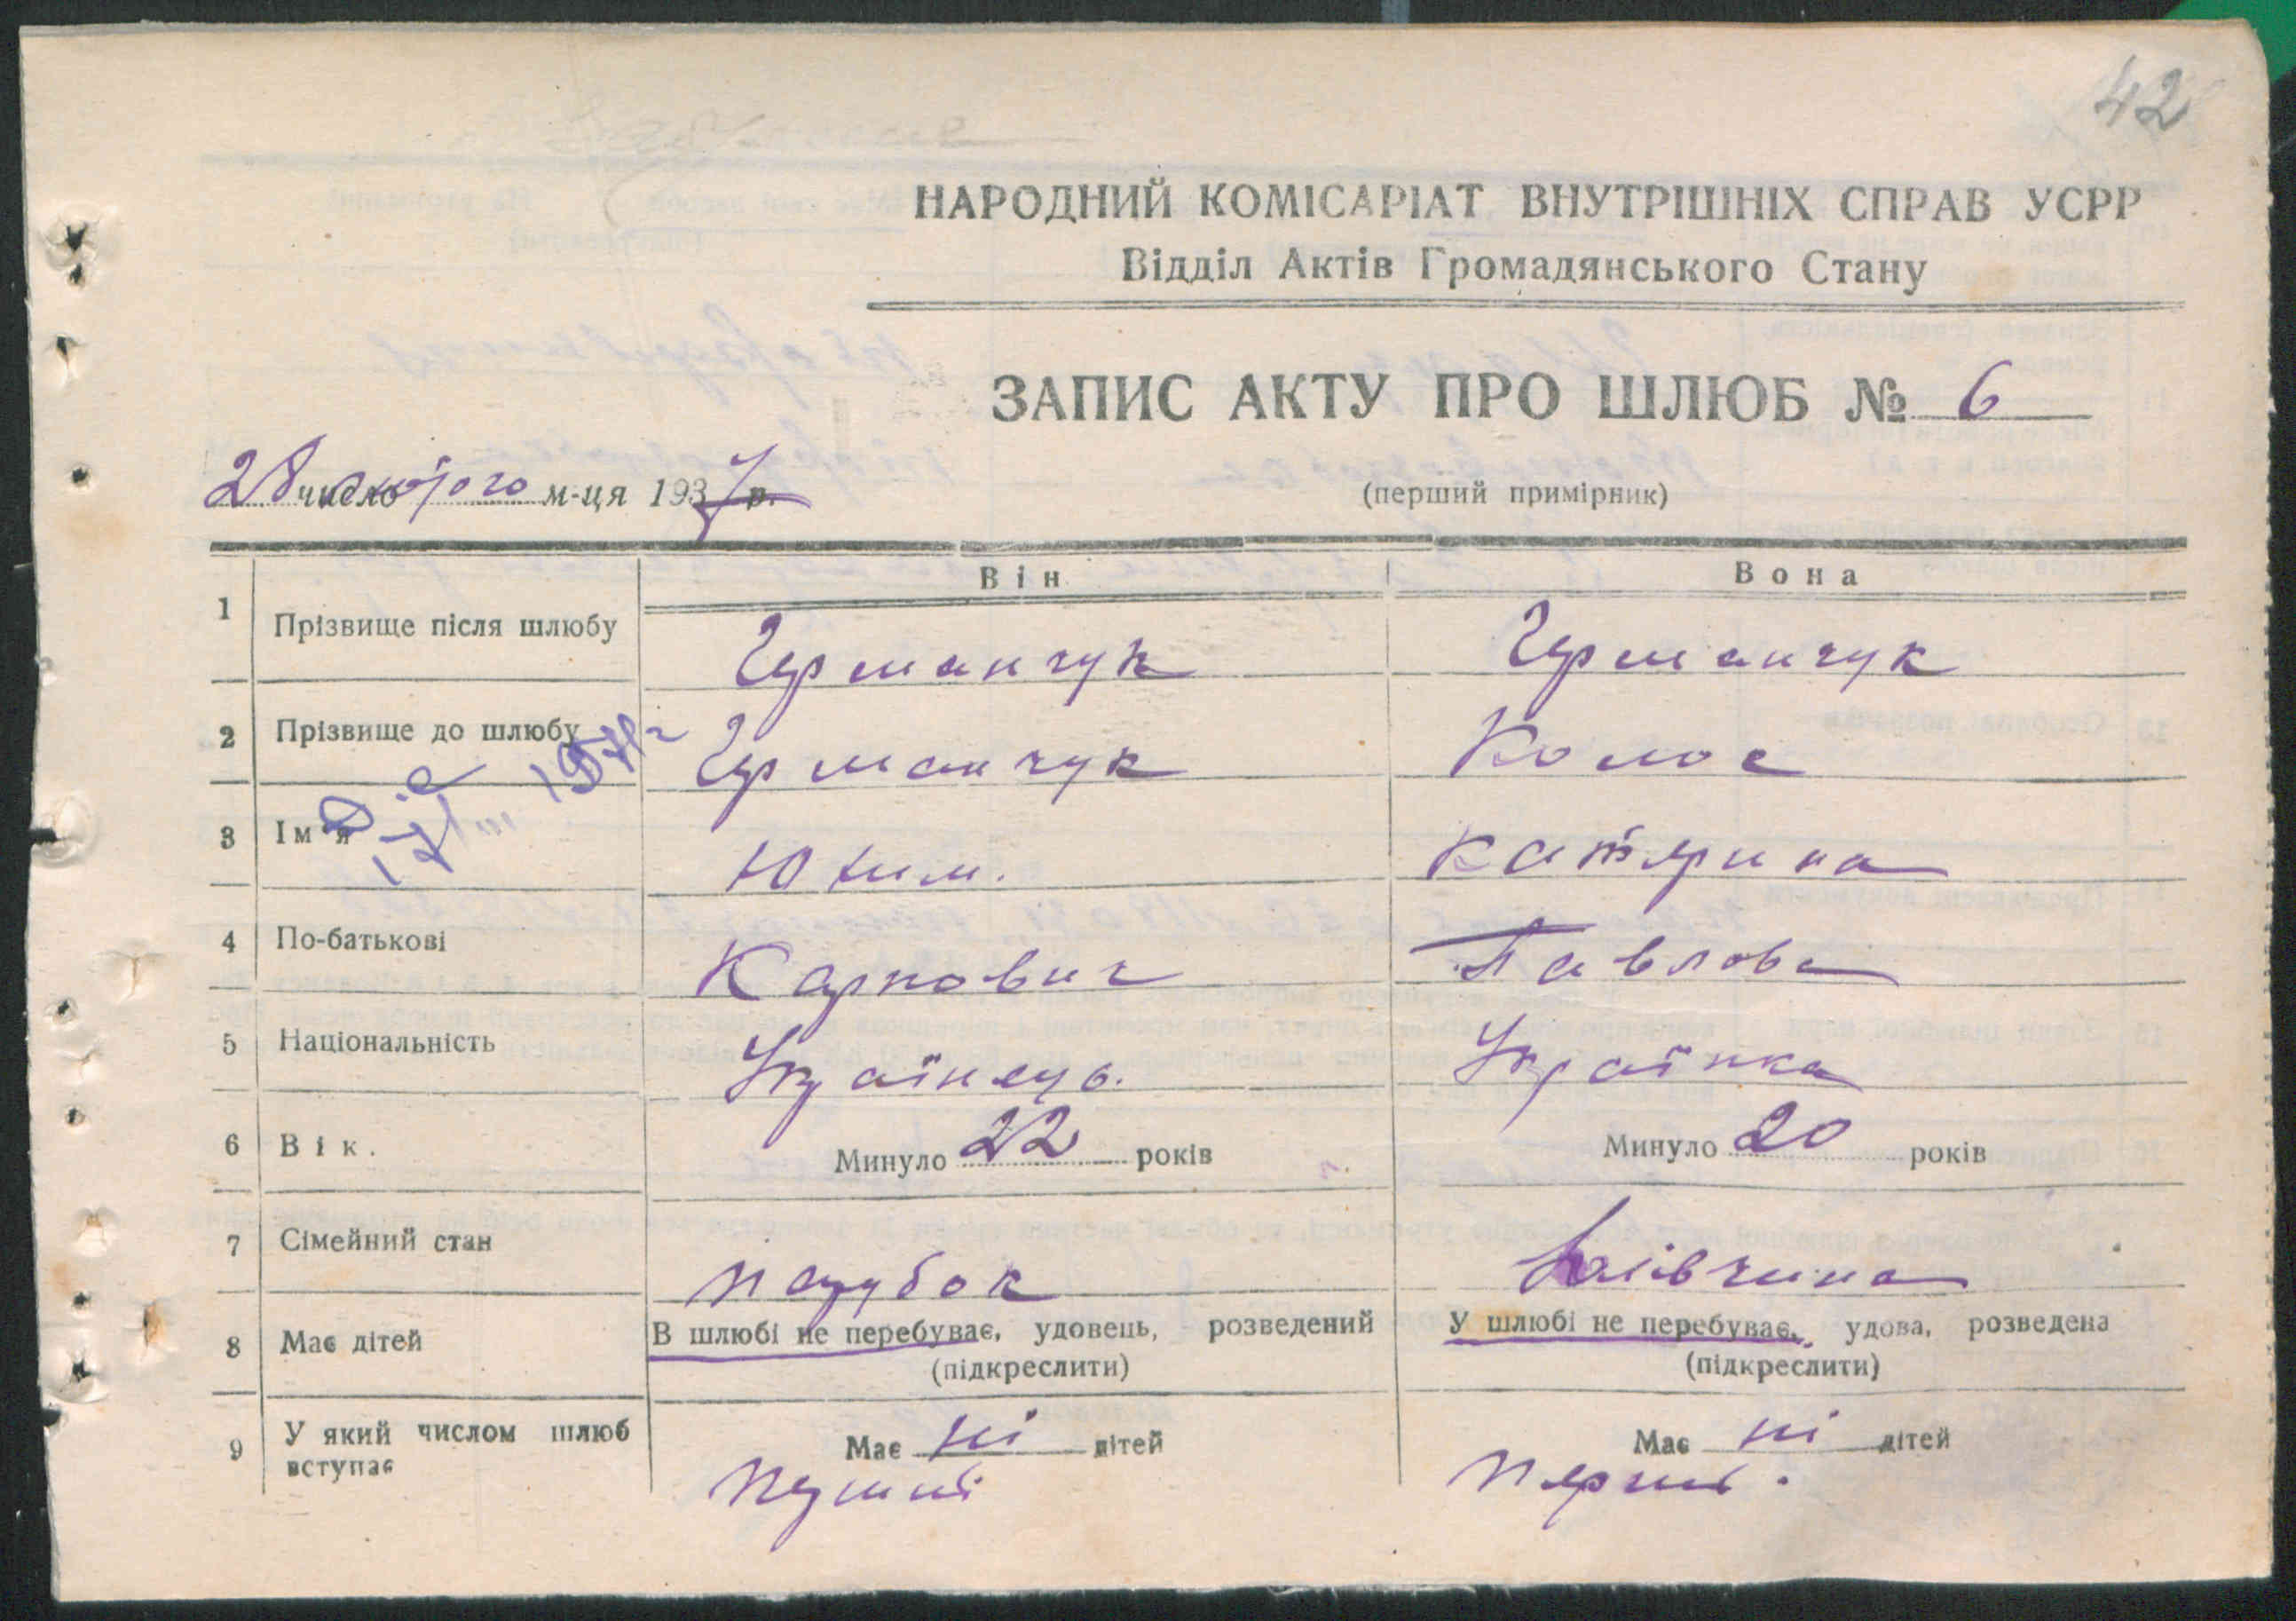 42
НАРОДНИЙ КОМІСАРІАТ ВНУТРІШНІХ СПРАВ УСРР
Відділ Актів Громадянського Стану
ЗАПИС АКТУ ПРО ШЛЮБ № 6
28 число лютого м-ця 1937 р.
(перший примірник)
Він Вона
1 Прізвище після шлюбу Германчук Германчук
2 Прізвище до шлюбу Германчук Колос
3 Ім'я Юхим. Катерина
4 По-батькові Карпович Павлова
5 Національність Українець. Українка
6 Вік. Минуло 22 років Минуло 20 років
7 Сімейний стан парубок дівчина
8 Має дітей В шлюбі не перебуває, удовець, розведений У шлюбі не перебуває, удова, розведена
(підкреслити) (підкреслити)
9 У який числом шлюб вступає Має ні дітей Має ні дітей
Перший Перший.